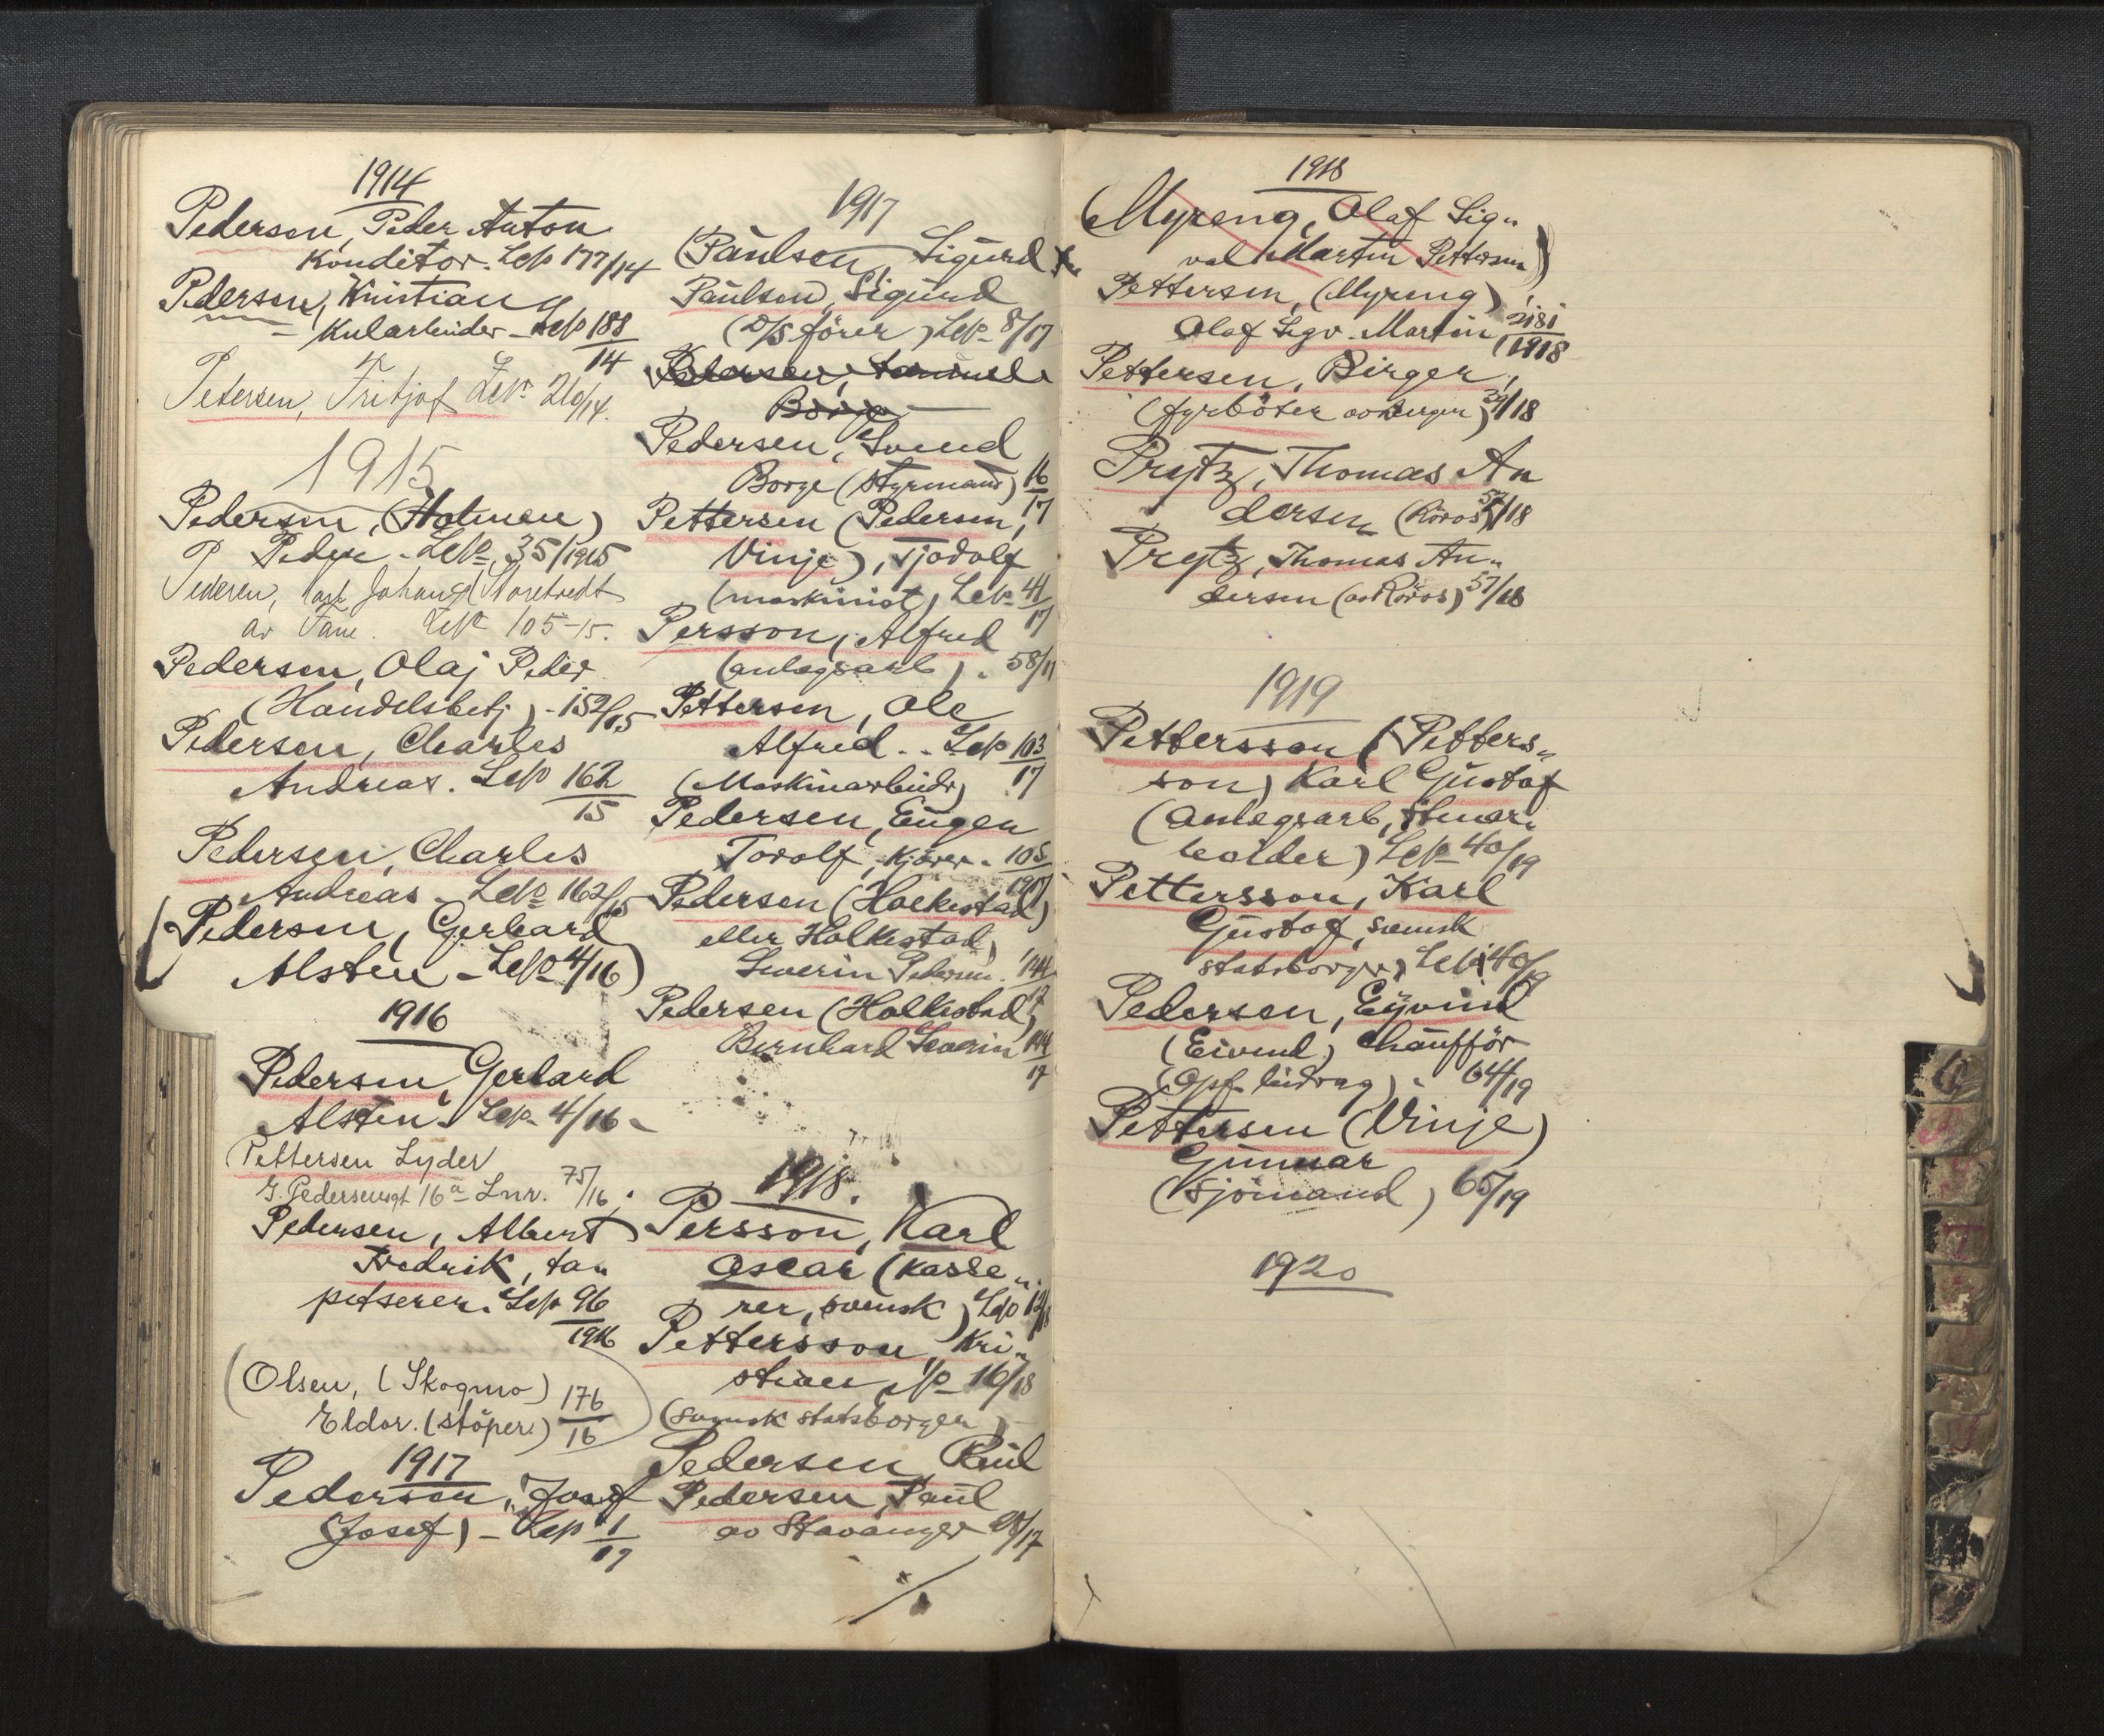 1914
Pedersen, Peder Anton
Konditor. Lep 177/14
Pedersen, Kristian
Kularbeider - Lep 188/14
Petersen, Fritjof Lep 210/14.
1915
Pedersen, (Holmen)
P Peder - Lep 35/1915
Pedersen, Johan
av Fane. Lep 105-15.
Pedersen, Olaj Peder
(Handelsbetj) - 152/15
Pedersen, Charles
Andreas. Lep 162/15
Pedersen, Charles
Andreas - Lep 162/15
(Pedersen, Gerhard
Alsten - Lep 4/16)
1916
Pedersen, Gerhard
Alsten. Lep. 4/16 -
(Pettersen Lyder
16a Lnr. 75/16.
Pedersen, Albert
Fredrik, ta„
petserer. Lep 96/1916
(Olsen, (Skogmo) 176/16
Eldor. (støper.)
1917
Pedersen, Josef
(Josef) - Lep 1/17
1917
(Paulsen, Sigurd
Paulsen, Sigurd
(D/S förer) Lep - 8/17
Pedersen,
Borge
Pedersen, Svend
Borge (Styrmand) 16/17
Pettersen (Pedersen,
Vinje), Tjodolf
(maskinist) Lep 41/17
Persson, Alfred
(anlegsarb). 58/17
Pettersen, Ole
Alfred. . Lep 103/17
(Maskinarbeidr)
Pedersen, Eugen
Torolf, Kjörer. 105/1917
Pedersen (Holkestad)
eller Holkestad,
Severin Pedersen. 144/17
Pedersen (Holkestad)
Bernhard Severin 144/17
1918.
Persson, Karl
Oscar (Kasse„
rer, svensk) Lep 12/18
Pettersson, Kri„
stian, Lp - 16/18
(Svensk statsborger)
Pedersen, Paul
Pedersen, Paul
av Stavanger 28/17
1918
(Myreng, Olaf Sig„
val Martin Pettersen)
Pettersen, (Myreng),
Olaf Sigv. Martin, 2181/1918
Pettersen, Birger,
(fyrböter av Bergen) 39/18
Prytz, Thomas An
dersen (Röros) 57/18
Prytz, Thomas An„
dersen (av Röros) 57/18
1919
Pettersson (Petters„
son) Karl Gustaf
(Anlegsarb,
holder) Lep 40/19
Pettersson, Karl
Gustaf, svensk
statsborger, Lep 40/19
Pedersen, Eyvind
(Eivind) Chaufför
(Opf. bidrag). 64/19
Pettersen (Vinje)
Gunnar
(Sjömand) 65/19
1920